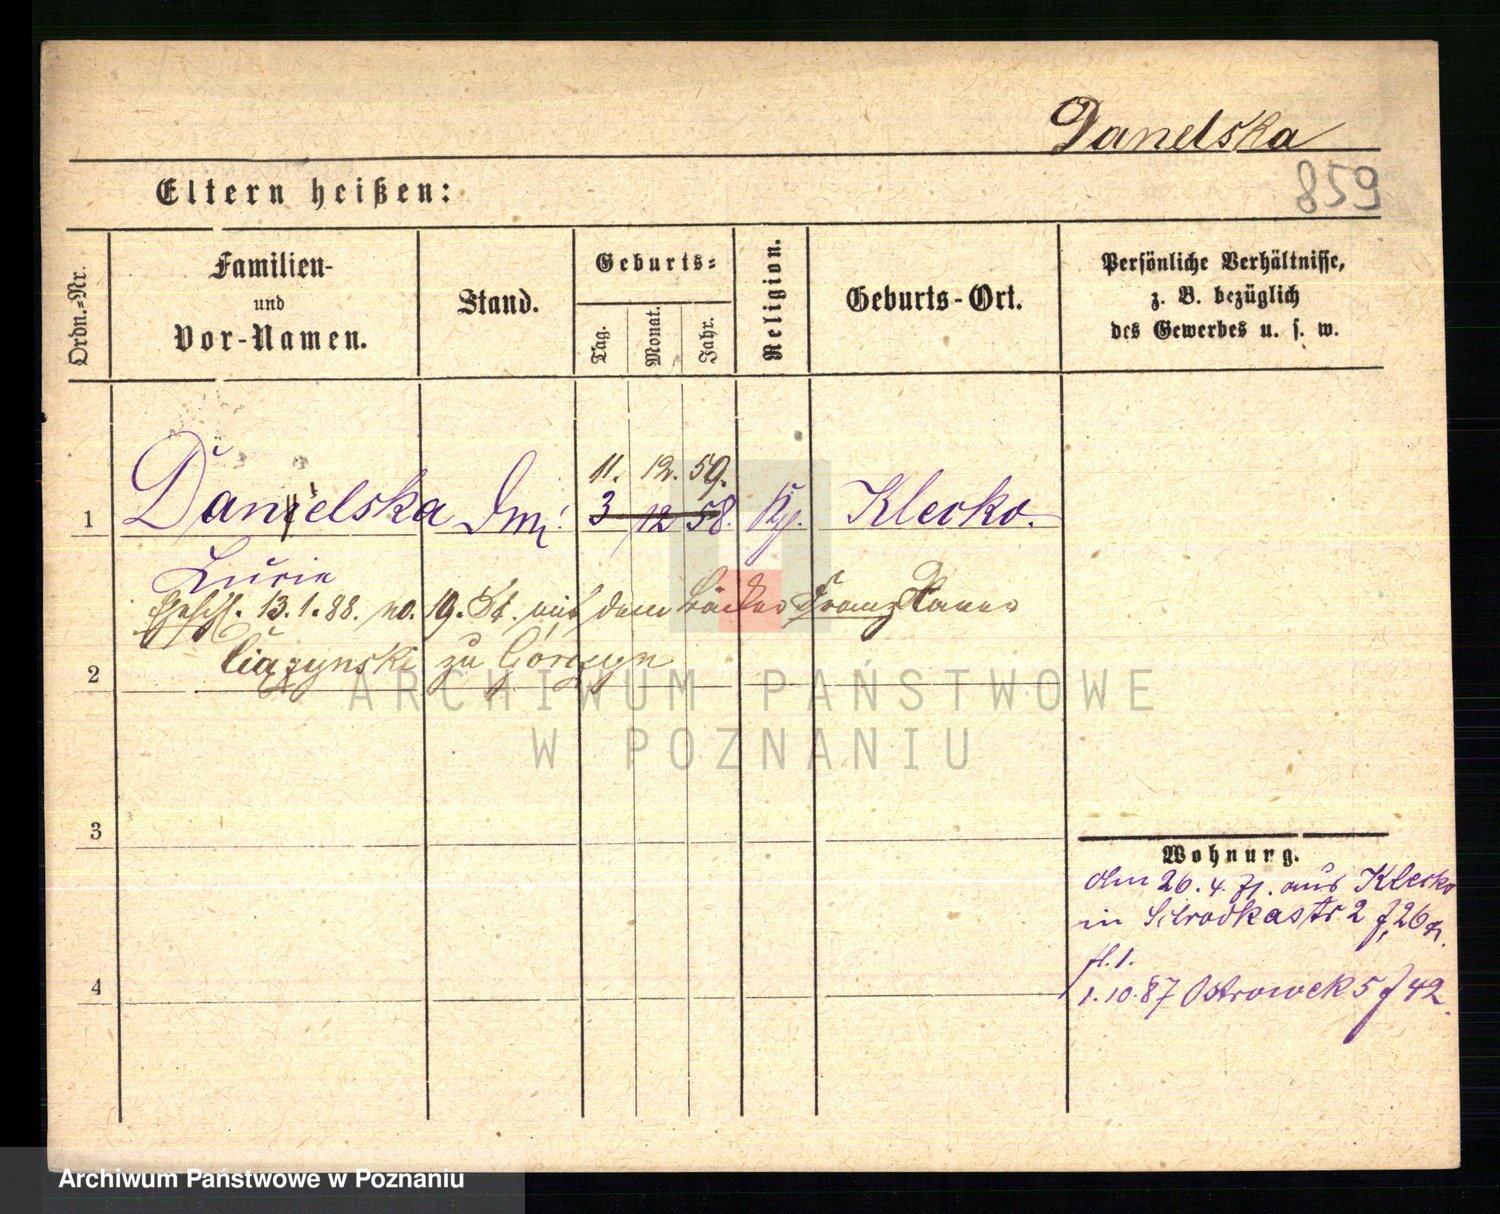 Danelska
859
Eltern heißen:
Ordn.-Nr.
Familien-
und
Vor-Namen.
Stand.
Geburts-
Tag.
Monat.
Jahr.
Religion.
Geburts-Ort.
Persönliche Verhältnisse,
z. B. bezüglich
des Gewerbes u. s. w.
11. 12. 59.
1 Danielska 3 12 58. Klecko.
Lucie
13.1.88. no. 19. St. mit dem Bäcker Franz Xaver
2 zu Górczyn
ARCHIWUM PAŃSTWOWE
W POZNANIU
3
Wohnung.
26.4. aus Klecko
in Schrodkastr 2
4
1.10.87 Ostrowek 5 42.
Archiwum Państwowe w Poznaniu